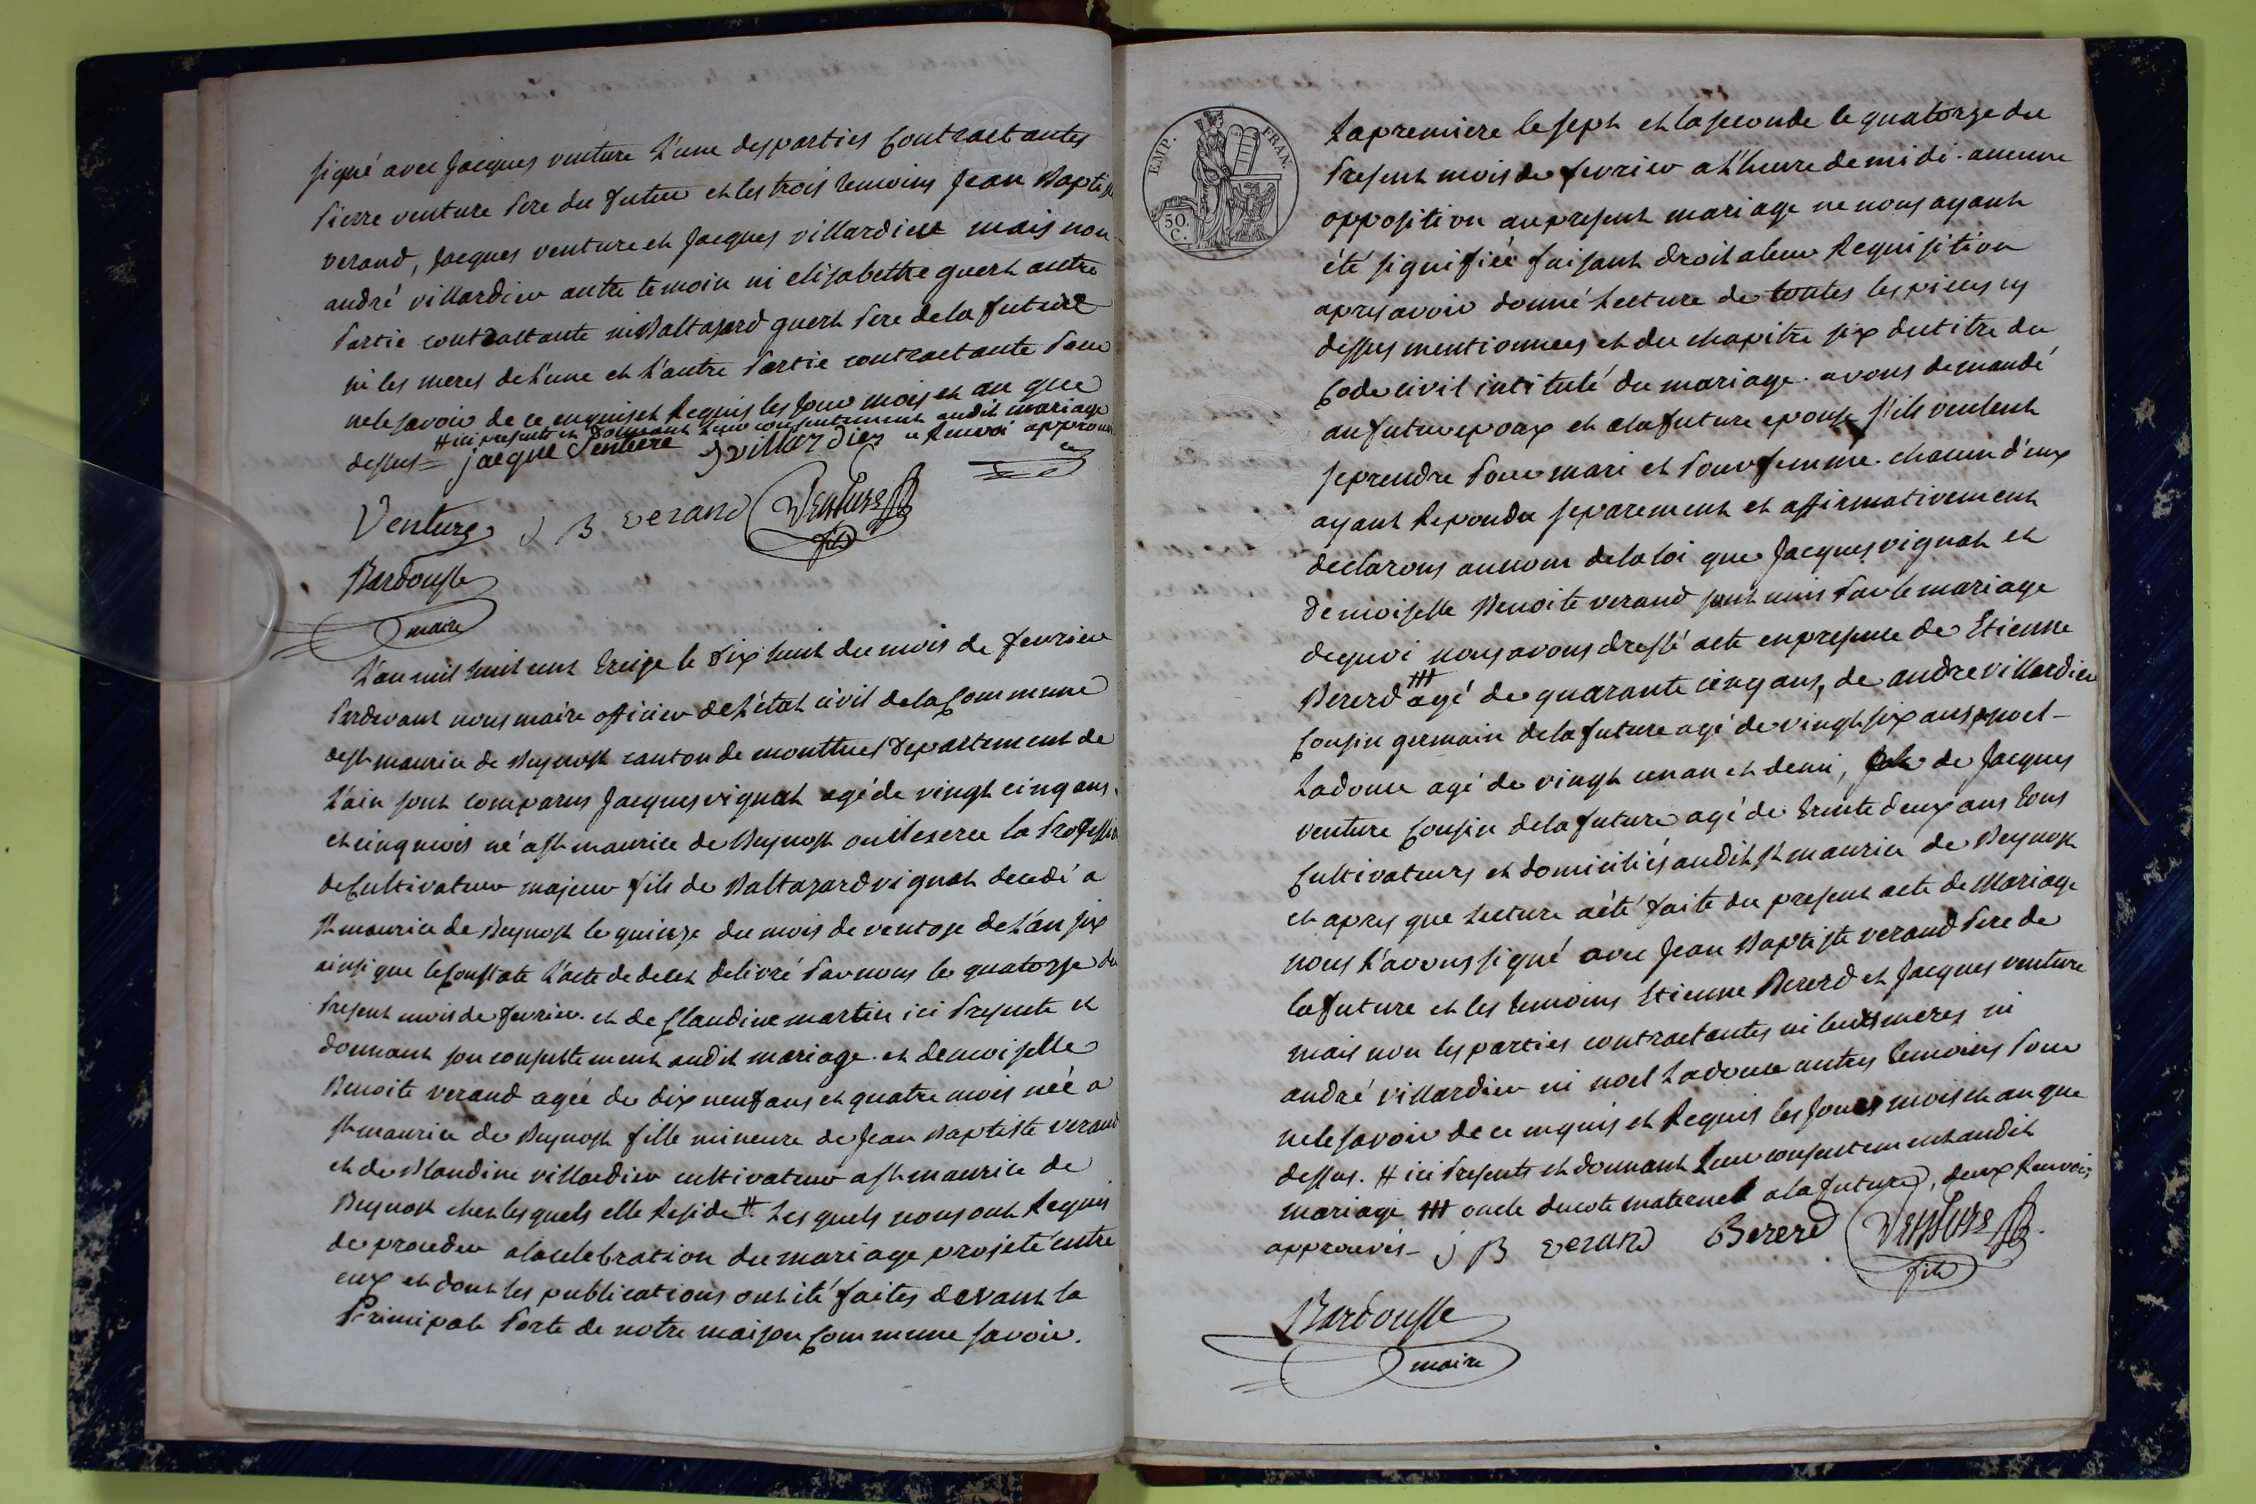 signé avec Jacques venture L'une des parties Contractantes
Pierre venture Pere du futur et les trois temoins Jean Baptiste
verand, Jacques venture et Jacques villardier mais non
andré villardier autre temoin ni elisabethe guert autre
Partie contractante ni Baltazard guert Pere de la future
ni les meres de L'une et L'autre Partie contractante Pour
ne le savoir de ce enquis et Requis les jour mois et an que
dessus = # ici presents et donnant leur consentement audit mariage
jacque venture J villardier un Renvoi approuvé
Venture J B verand Venture fils
Bardousse
maire
L'an mil huit cent treize le dix huit du mois de fevrier
Pardevant nous maire officier de L'état civil de la Commune
de st maurice de Beynost canton de montluel departement de
L'ain sont comparus Jacques vignat agé de vingt cinq ans
et cinq mois né a st maurice de Beynost ou il exerce la Profession
de Cultivateur majeur fils de Baltazard vignat decedé a
st maurice de Beynost le quinze du mois de ventose de L'an six
ainsi que le Constate L'acte de deces delivré Par nous le quatorze du
Present mois de fevrier. et de Claudine martin ici Presente et
donnant son consentement audit mariage. et demoiselle
Benoite verand agée de dix neuf ans et quatre mois née a
st maurice de Beynost fille mineure de Jean Baptiste verand
et de Blandine villardier cultivateur a st maurice de
Beynost chez lesquels elle Reside # Lesquels nous ont Requis
de proceder a la celebration du mariage projeté entre
eux et dont les publications ont été faites devant la
Principale Porte de notre maison Commune savoir.
EMP. FRAN.
50. C.
La premiere le sept et la seconde le quatorze du
Present mois de fevrier a L'heure de midi. aucune
opposition au present mariage ne nous ayant
été signifiée faisant droit a leur Requisition
apres avoir donné Lecture de toutes les pieces cy
dessus mentionnees et du chapitre six du titre du
Code civil intitulé du mariage. avons demandé
au futur epoux et a la future epouse s'ils veulent
se prendre Pour mari et Pour femme. chacun d'eux
ayant Repondu separement et affirmativement
declarons au nom de la loi que Jacques vignat et
demoiselle Benoite verand sont unis Par le mariage
de quoi nous avons dressé acte en presence de Etienne
Bererd ## agé de quarante cinq ans, de andre villardier
Cousin germain de la future agé de vingt six ans noel
Ladouce agé de vingt un an et demi, de Jacques
venture Cousin de la future agé de trente deux ans tous
Cultivateurs et domiciliés audit st maurice de Beynost
et apres que Lecture a été faite du present acte de Mariage
nous L'avons signé avec Jean Baptiste verand Pere de
la future et les temoins Etienne Bererd et Jacques venture
mais non les parties contractantes ni leurs meres ni
andré villardier ni noel Ladouce autres temoins Pour
ne le savoir de ce enquis et Requis les jours mois et an que
dessus. # ici Presents et donnant Leur consentement audit
mariage ## oncle du coté maternel a la future, deux Renvois
approuvés - J B verand Bererd Venture fils
Bardousse
maire